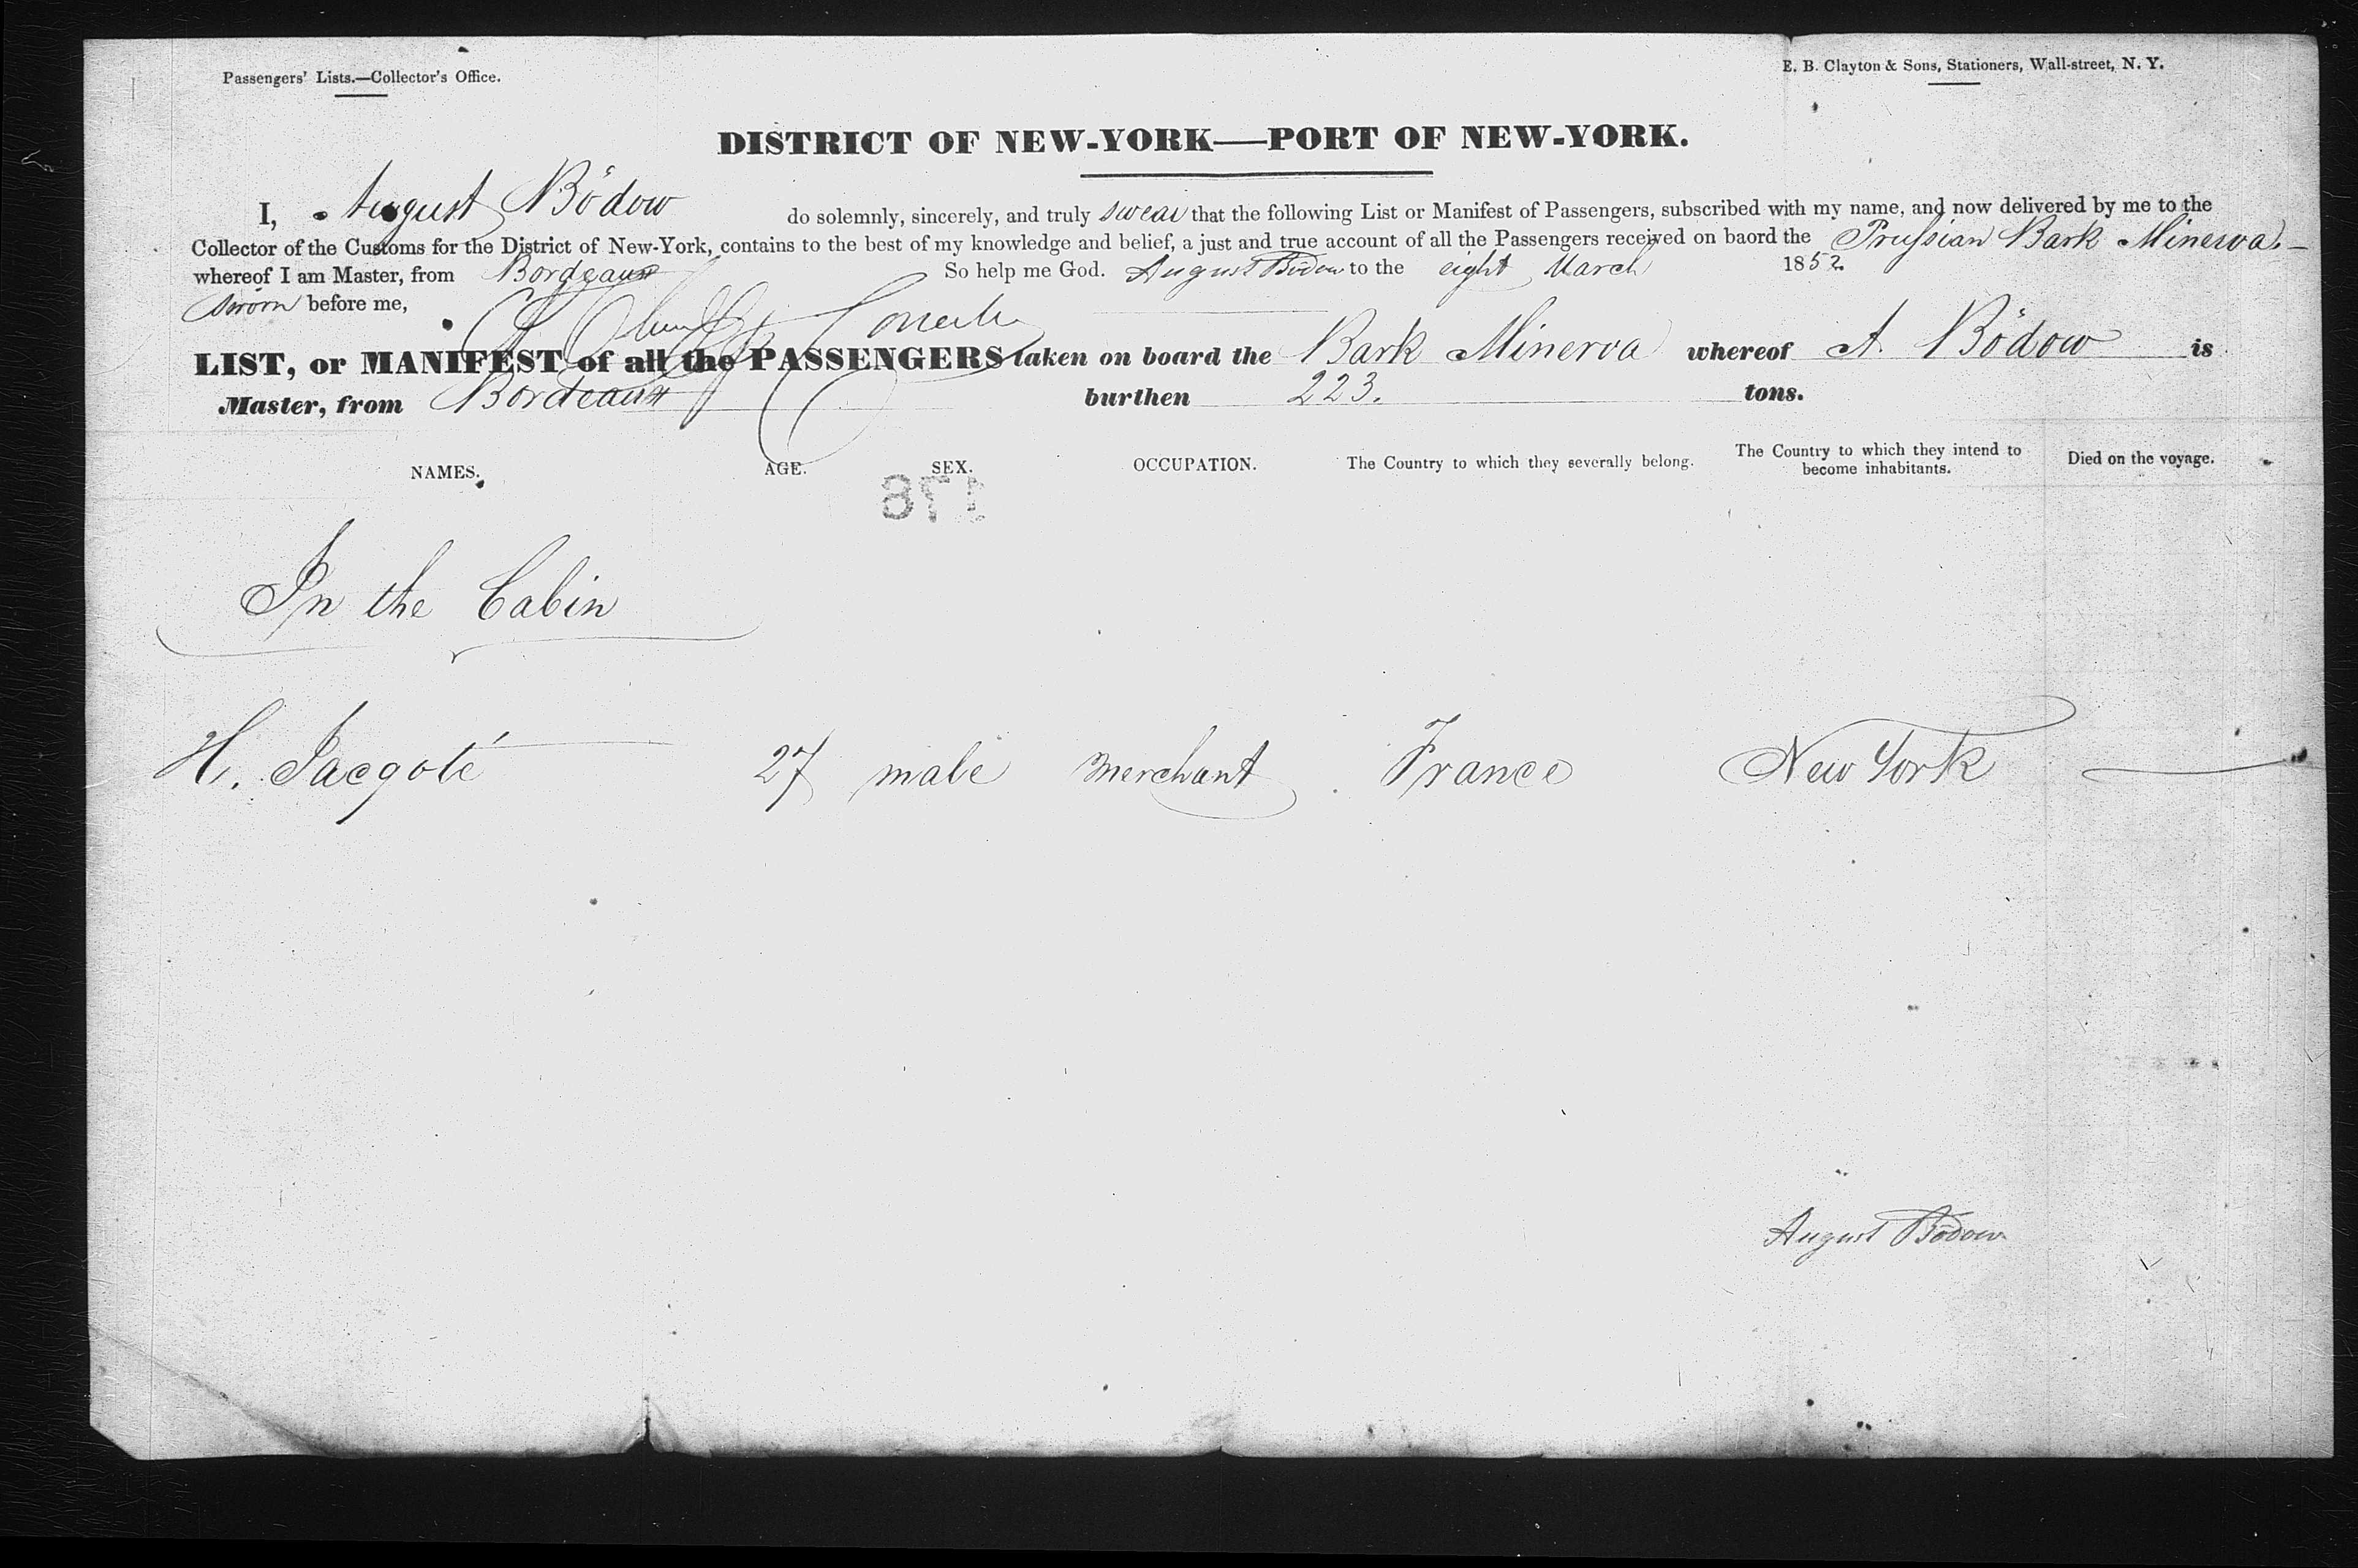 Passengers' Lists.—Collector's Office.
E. B. Clayton & Sons, Stationers, Wall-street, N. Y.
DISTRICT OF NEW-YORK—PORT OF NEW-YORK.
I, August Bödow do solemnly, sincerely, and truly swear that the following List or Manifest of Passengers, subscribed with my name, and now delivered by me to the
Collector of the Customs for the District of New-York, contains to the best of my knowledge and belief, a just and true account of all the Passengers received on baord the Prussian Bark Minerva.—
whereof I am Master, from Bordeaux So help me God. August Bödow to the eight March 1852
Sworn before me,
LIST, or MANIFEST of all the PASSENGERS taken on board the Bark Minerva whereof A. Bödow is
Master, from Bordeaux burthen 223. tons.
NAMES. AGE. SEX. OCCUPATION. The Country to which they severally belong. The Country to which they intend to become inhabitants. Died on the voyage.
178
In the Cabin
H. Jacgoté 27 male merchant France New York —
August Bödow